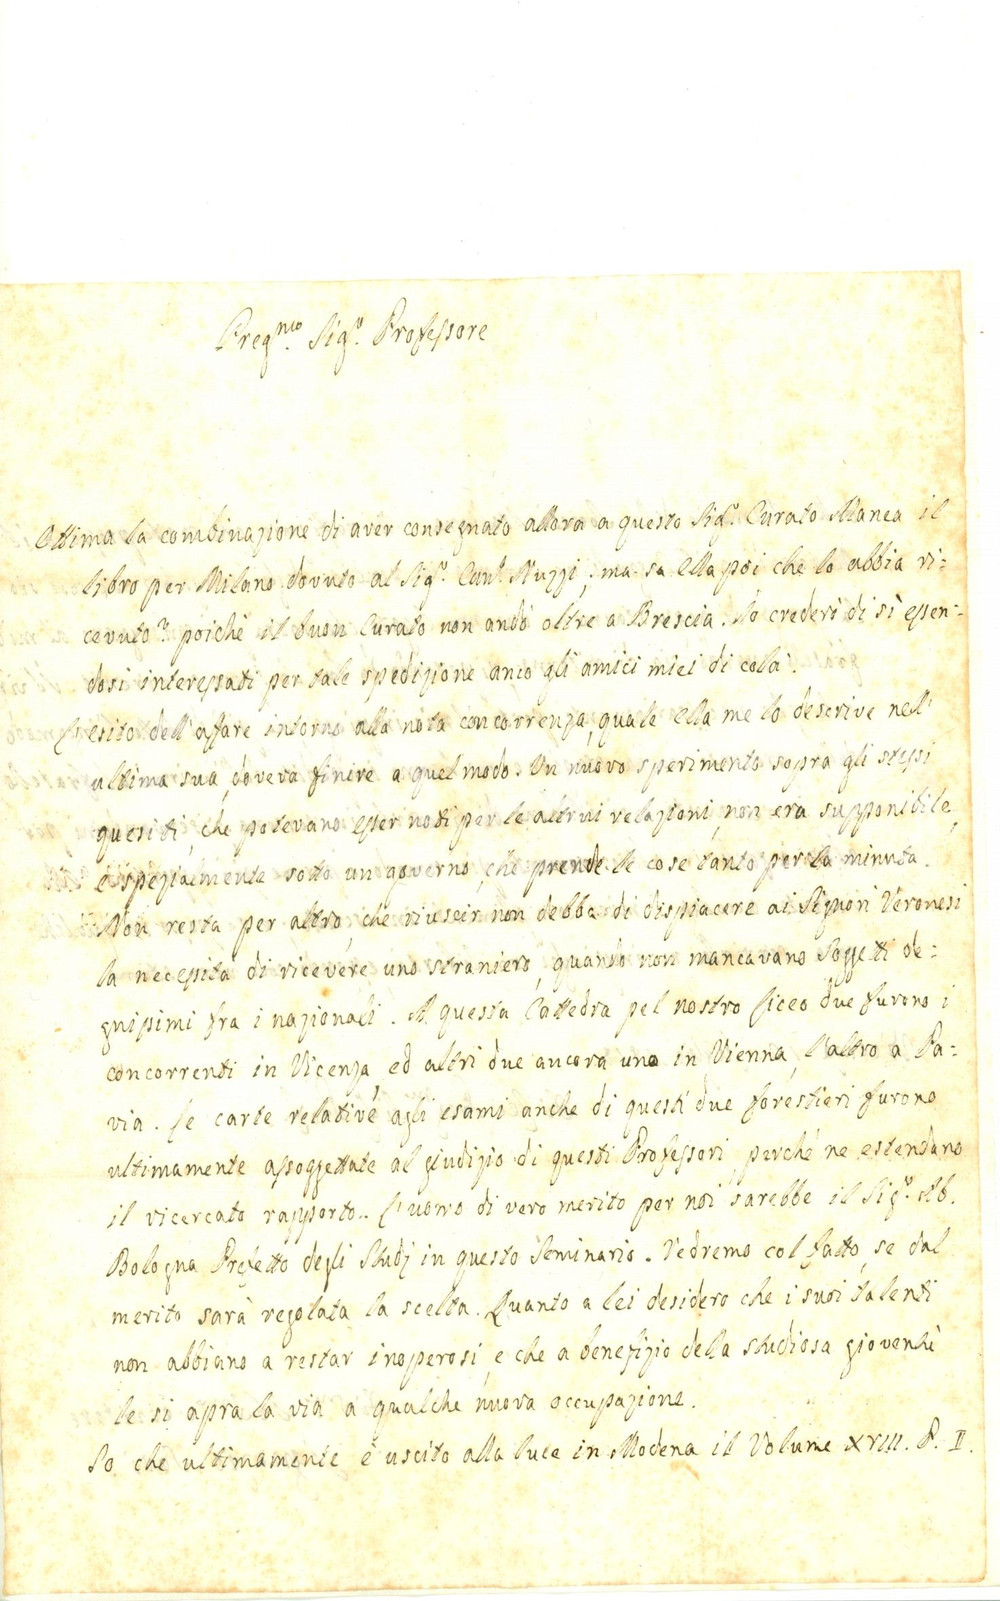 Preg.mo Sig.r Professore
Ottima la combinazione di aver consegnato allora a questo Sig.r Curato Manea il
libro per Milano dovuto al Sig.r Nuzzi; ma sa Ella poi che lo abbia ri=
cevuto? poichè il buon Curato non andò oltre a Brescia. Io crederò di sì essen=
dosi interessati per tale spedizione anco gli amici miei di colà.
L'esito dell'affare intorno alla nota concorrenza, quale ella me lo descrive nell'
ultima sua, doveva finire a quel modo. Un nuovo sperimento sopra gli stessi
quesiti, che potevano esser noti per le altrui relazioni, non era supponibile,
e spezialmente sotto un governo, che prende le cose tanto per la minuta.
Non resta per altro, che riuscir non debba di dispiacere ai Signori Veronesi
la necessita di ricevere uno straniero, quando non mancavano Soggetti de=
gnissimi fra i nazionali. A questa Cattedra pel nostro Liceo due furono i
concorrenti in Vicenza, ed altri due ancora uno in Vienna, l'altro a Pa=
via. Le carte relative agli esami anche di questi due forestieri furono
ultimamente assoggettate al giudizio di questi Professori perchè ne estendano
il ricercato rapporto. L'uomo di vero merito per noi sarebbe il Sig.r Ab.
Bologna Prefetto degli Studj in questo Seminario. Vedremo col fatto, se dal
merito sarà regolata la scelta. Quanto a lei desidero che i suoi talenti
non abbiano a restar inoperosi, e che a benefizio della studiosa gioventù
le si apra la via a qualche nuova occupazione.
So che ultimamente è uscito alla luce in Modena il Volume XVIII. P. II.